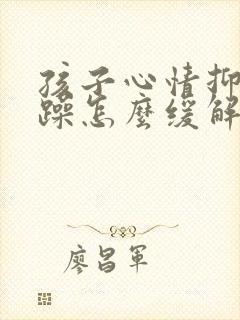 孩子心情抑
躁怎麼緩解
廖昌軍